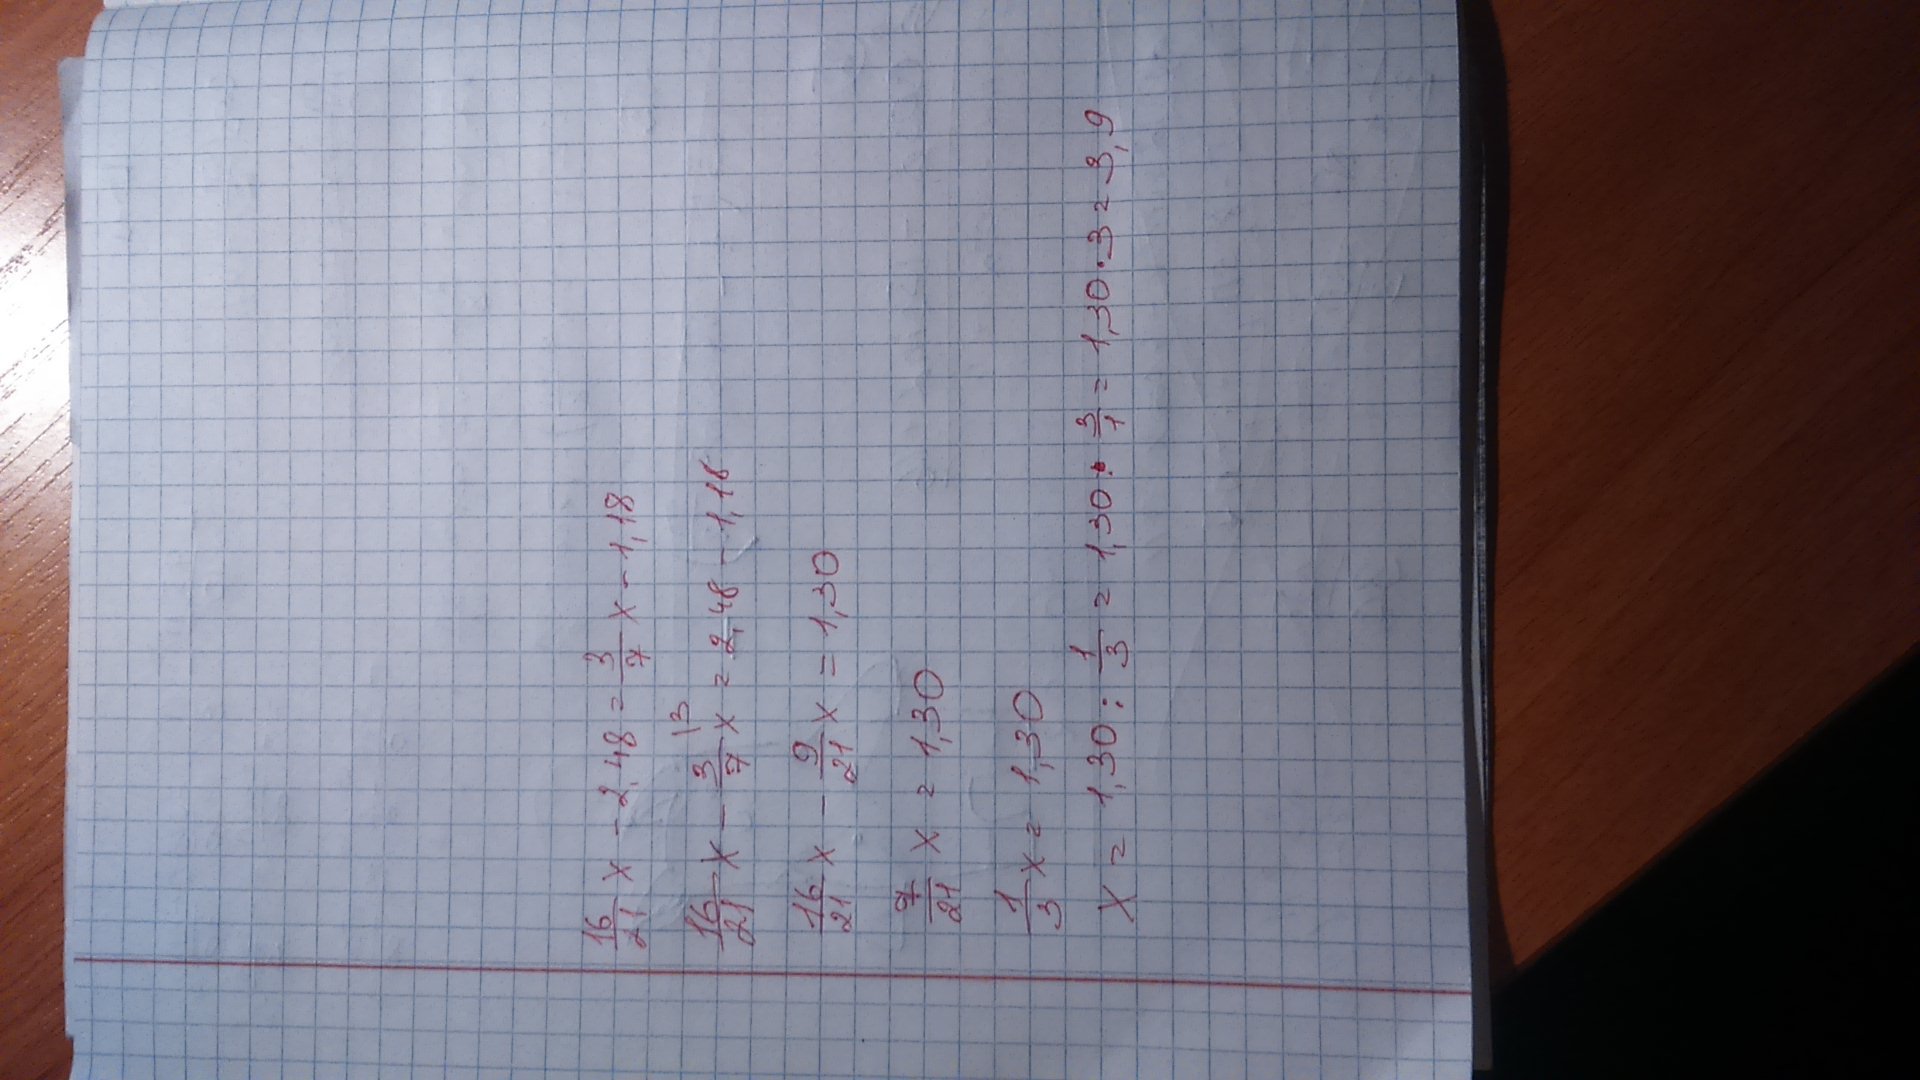 16/21 x - 2,48 = 3/7 x - 1,18
16/21 x - 3/7 \3 x = 2,48 - 1,18
16/21 x - 9/21 x = 1,30
7/21 x = 1,30
1/3 x = 1,30
x = 1,30 : 1/3 = 1,30 · 3/1 = 1,30 · 3 = 3,9